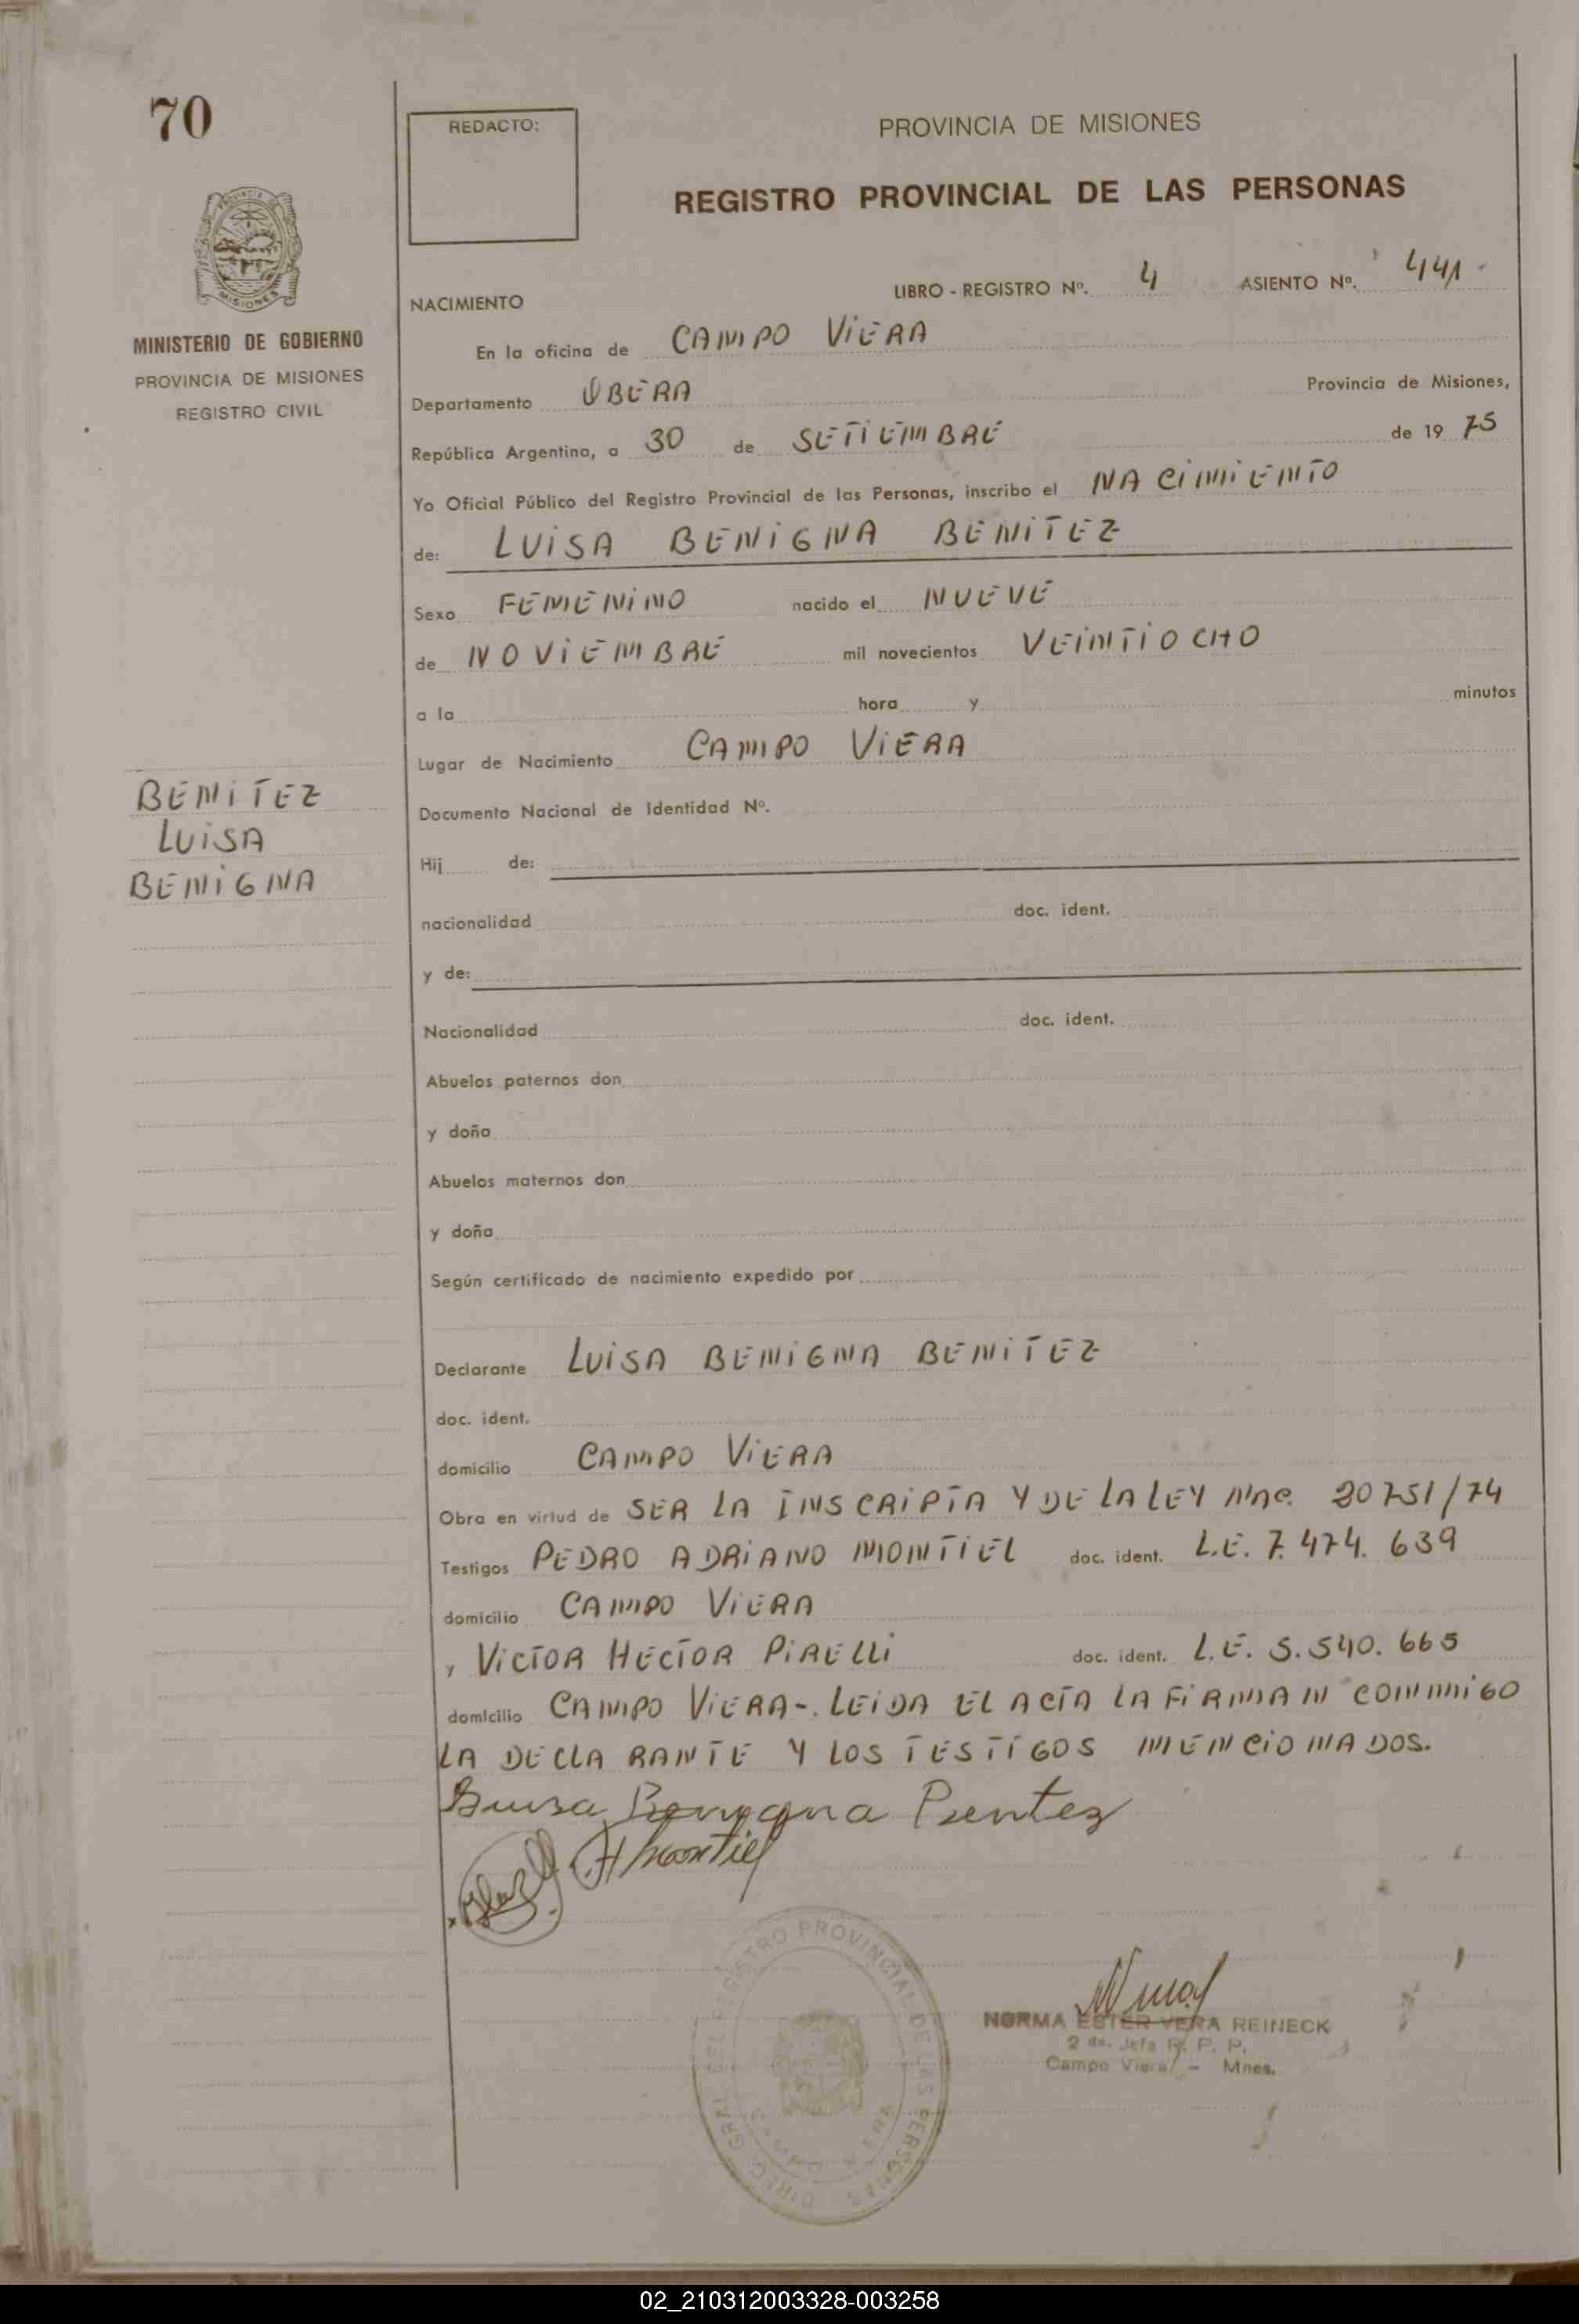 70
REDACTO:
PROVINCIA DE MISIONES
REGISTRO PROVINCIAL DE LAS PERSONAS
MISIONES
MINISTERIO DE GOBIERNO
PROVINCIA DE MISIONES
REGISTRO CIVIL
NACIMIENTO LIBRO - REGISTRO Nº. 4 ASIENTO Nº. 441
En la oficina de CAMPO ViERA
Departamento OBERA Provincia de Misiones,
República Argentina, a 30 de SETiEMBRE de 19 75
Yo Oficial Público del Registro Provincial de las Personas, inscribo el NACiMiENTO
de: LUiSA BENiGNA BENiTEZ
Sexo FEMENiNO nacido el NUEVE
de NOViEMBRE mil novecientos VEiNTiOCHO
a la hora y minutos
Lugar de Nacimiento CAMPO ViERA
BENiTEZ
LUiSA
BENiGNA
Documento Nacional de Identidad Nº.
Hij de:
nacionalidad doc. ident.
y de:
Nacionalidad doc. ident.
Abuelos paternos don
y doña
Abuelos maternos don
y doña
Según certificado de nacimiento expedido por
Declarante LUiSA BENiGNA BENiTEZ
doc. ident.
domicilio CAMPO ViERA
Obra en virtud de SER LA INSCRiPTA Y DE LA LEY NAC. 20751/74
Testigos PEDRO ADRiANO MONTiEL doc. ident. L.E. 7.474.639
domicilio CAMPO ViERA
y ViCTOR HECTOR PiRELLi doc. ident. L.E. 5.540.665
domicilio CAMPO ViERA-. LEiDA EL ACTA LA FiRMAN CONMiGO
LA DECLARANTE Y LOS TESTiGOS MENCiONADOS.
Luisa Benigna Benitez
Montiel
DIREC. GRAL. DEL REGISTRO PROVINCIAL DE LAS PERSONAS
NORMA ESTER VERA REINECK
2 da. Jefa R. P. P.
Campo Viera - Mnes.
02_210312003328-003258